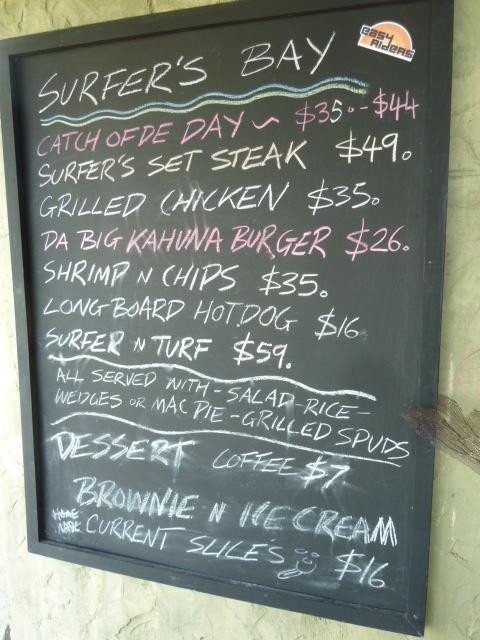 easy Riders
SURFER'S BAY
CATCH OF DE DAY ~ $35.-$44
SURFER'S SET STEAK $49.
GRILLED CHICKEN $35.
DA BIG KAHUNA BURGER $26.
SHRIMP N CHIPS $35.
LONG BOARD HOTDOG $16
SURFER N TURF $59.
ALL SERVED WITH - SALAD - RICE -
WEDGES OR MAC PIE - GRILLED SPUDS
DESSERT COFFEE $7
BROWNIE N ICE CREAM
HOME MADE CURRENT SLICE'S $16